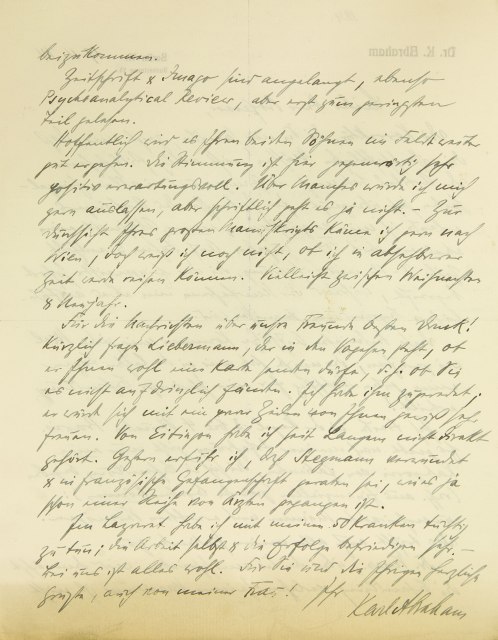 beizukommen.
Zeitschrift & Imago sind angelangt, ebenso
Psychoanalytical Review, aber erst zum geringsten
Teil gelesen.
Hoffentlich wird es Ihren beiden Söhnen im Felde weiter
gut ergehen. Die Stimmung ist hier gegenwärtig sehr
positiv erwartungsvoll. Über Manches würde ich mich
gern auslassen, aber schriftlich geht es ja nicht. – Zur
Durchsicht Ihres großen Manuskripts käme ich gern nach
Wien, doch weiß ich noch nicht, ob ich in absehbarer
Zeit werde reisen können. Vielleicht zwischen Weihnachten
& Neujahr.
Für die Nachrichten über unsre Freunde besten Dank!
Kürzlich fragte Liebermann, der in den Vogesen steht, ob
er Ihnen wohl eine Karte senden dürfe, d.h. ob Sie
es nicht aufdringlich fänden. Ich habe ihm zugeredet;
er würde sich mit ein paar Zeilen von Ihnen gewiß sehr
freuen. Von Eitingon habe ich seit Langem nicht direkt
gehört. Gestern erfuhr ich, daß Stegmann verwundet
& in französische Gefangenschaft geraten sei, wie es ja
schon einer Reihe von Ärzten gegangen ist.
Im Lazaret habe ich mit meinen 50 Kranken tüchtig
zu tun; die Arbeit selbst & die Erfolge befriedigen sehr. –
Bei uns ist alles wohl. Für Sie und die Ihrigen herzliche
Grüße, auch von meiner Frau! Ihr
Karl Abraham
Dr. K. Abraham